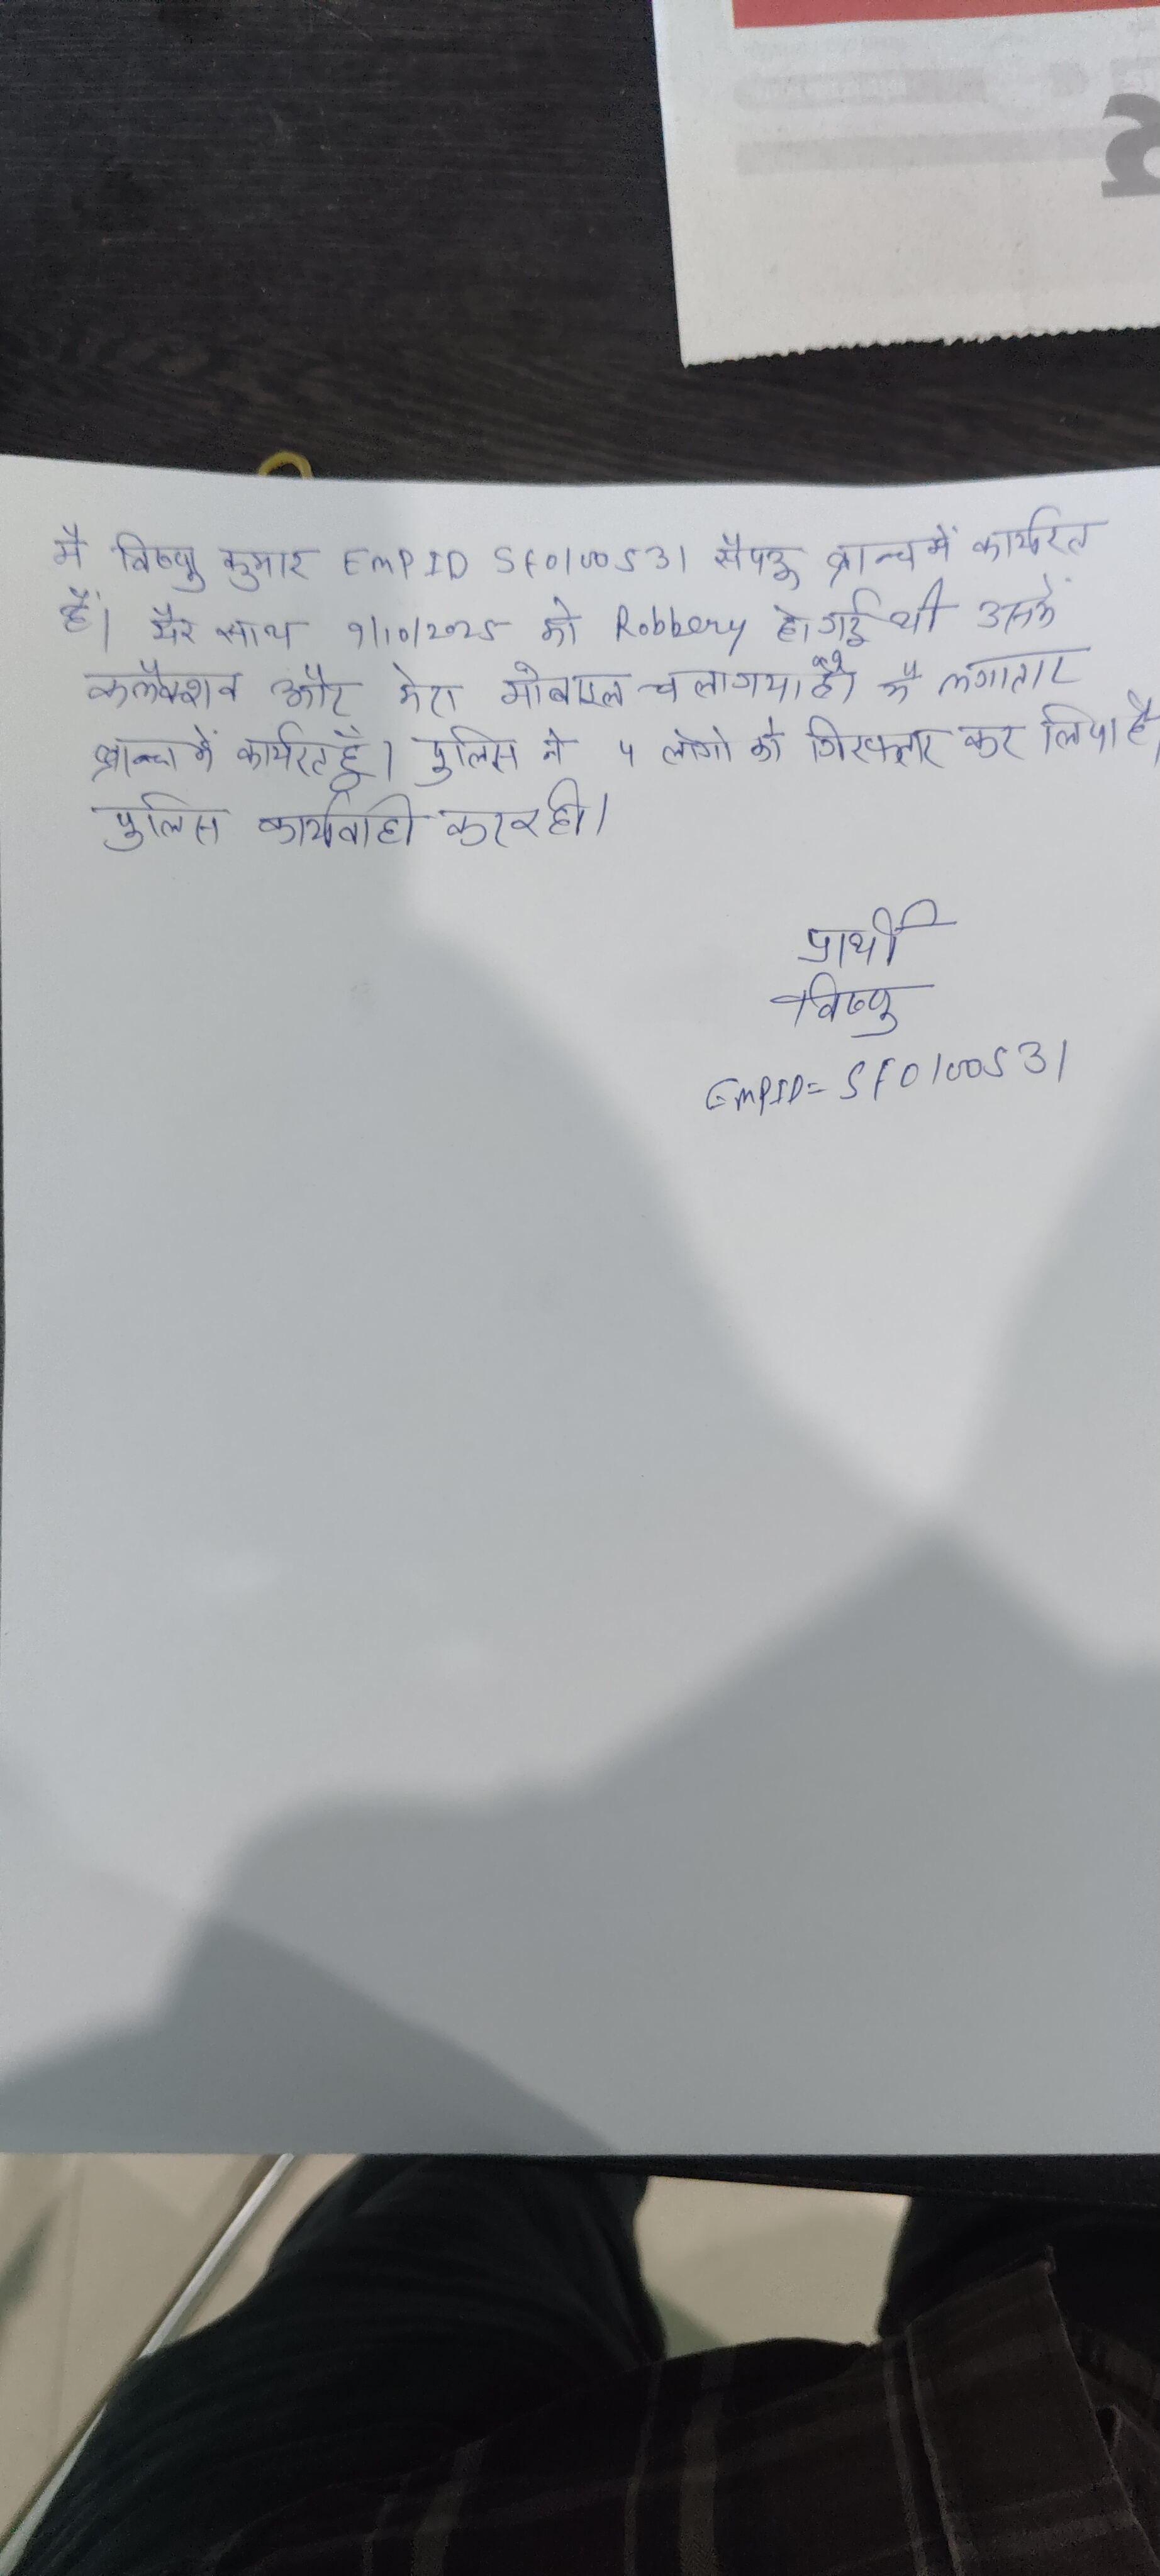 मै विष्णु कुमार EMP ID SF0100531 सैपऊ ब्रान्च में कार्यरत
हैं। मैरे साथ 9/10/2025 को Robbery हो गई थी उसमें
कलैक्शन और मेरा मोबाइल चला गया है। मै लगातार
ब्रान्च में कार्यरत हूँ। पुलिस ने 4 लोगो को गिरफ्तार कर लिया है।
पुलिस कार्यवाही कर रही।
प्रार्थी
विष्णु
EMPID= SF0100531